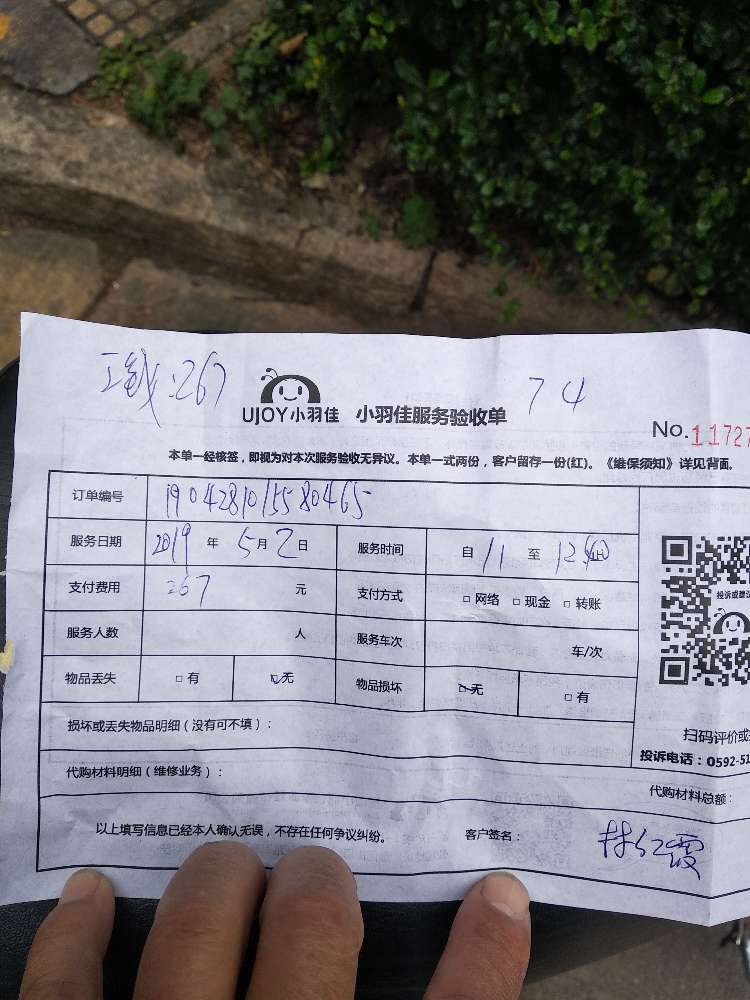 267
74
UJOY小羽佳 小羽佳服务验收单
No.11727
本单一经核签，即视为对本次服务验收无异议。本单一式两份，客户留存一份(红)。《维保须知》详见背面。
订单编号 1904281015580465
服务日期 2019 年 5月2日 服务时间 自 11 至 12
支付费用 267 元 支付方式 □网络 □现金 □转账
服务人数 人 服务车次 车/次
物品丢失 □有 □无 物品损坏 □无 □有
投诉或建议
损坏或丢失物品明细（没有可不填）：
扫码评价或
投诉电话：0592-51
代购材料明细（维修业务）：
代购材料总额：
以上填写信息已经本人确认无误，不存在任何争议纠纷。 客户签名： 林红霞